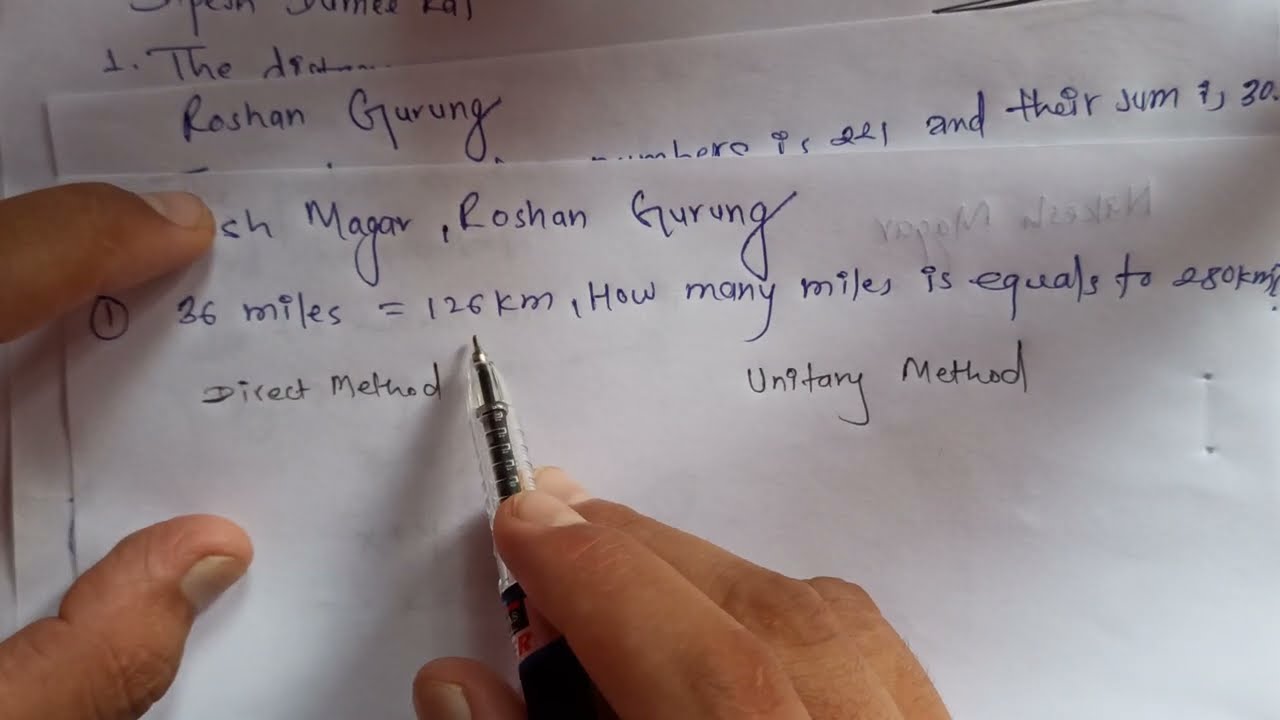 1. The
Roshan Gurung
is 221 and their sum is 30.
sh Magar, Roshan Gurung
① 36 miles = 126 km, How many miles is equals to 280km?
Direct Method
Unitary Method